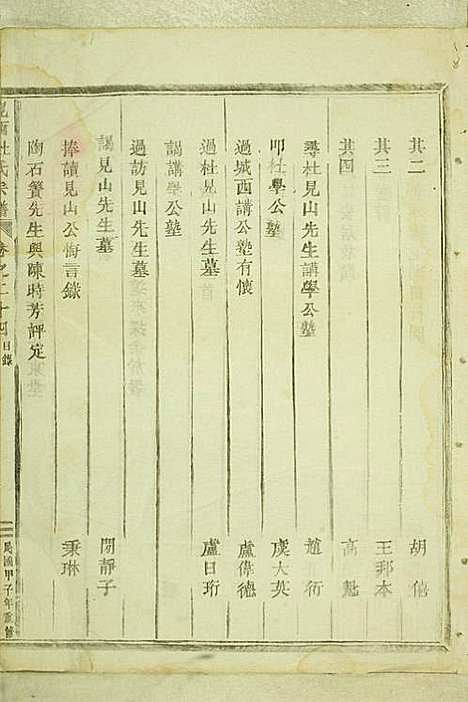 其二 胡僖
其三 王邦本
其四 高魁
尋杜見山先生講學公塾 趙 衍
叩杜學公塾 虞大英
過城西講公塾有懷 盧偉德
過杜見山先生墓 盧日珩
謁講學公塾
過訪見山先生墓
謁見山先生墓 閒靜子
捧讀見山公悔言錄 秉琳
陶石簣先生與陳時芳評定
杜氏宗譜 卷之二十四 目錄 民國甲子年重修